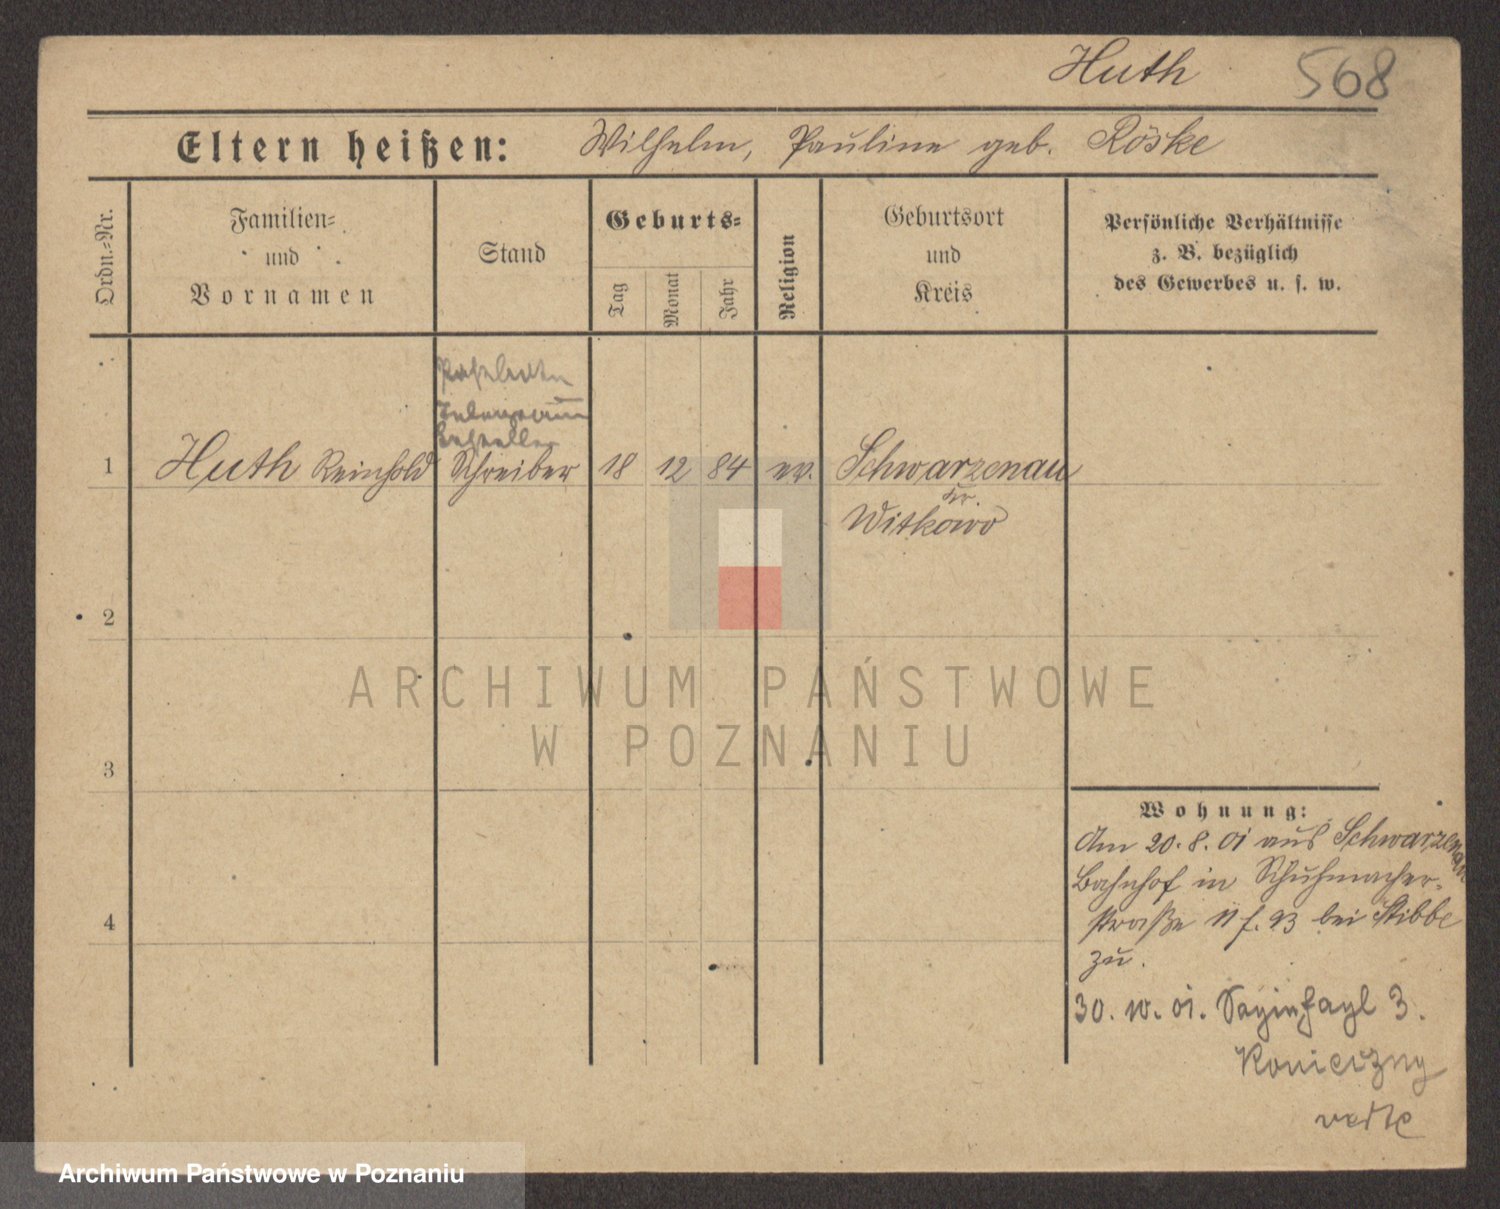 Huth 568
Eltern heißen: Wilhelm, Pauline geb. Röske
Ordn.=Nr.
Familien=
und
Vornamen
Stand
Geburts=
Tag
Monat
Jahr
Religion
Geburtsort
und
Kreis
Persönliche Verhältnisse
z. B. bezüglich
des Gewerbes u. s. w.
1 Huth Reinhold Schreiber 18 12 84 ev. Schwarzenau
Kr.
Witkowo
2
3
4
Wohnung:
Am 20.8.01 aus Schwarzenau
Bahnhof in Schuhmacher-
straße 11 f. 93 bei Stibbe
zu.
30. 10. 01. 3.
Konieczny
ARCHIWUM PAŃSTWOWE
W POZNANIU
Archiwum Państwowe w Poznaniu